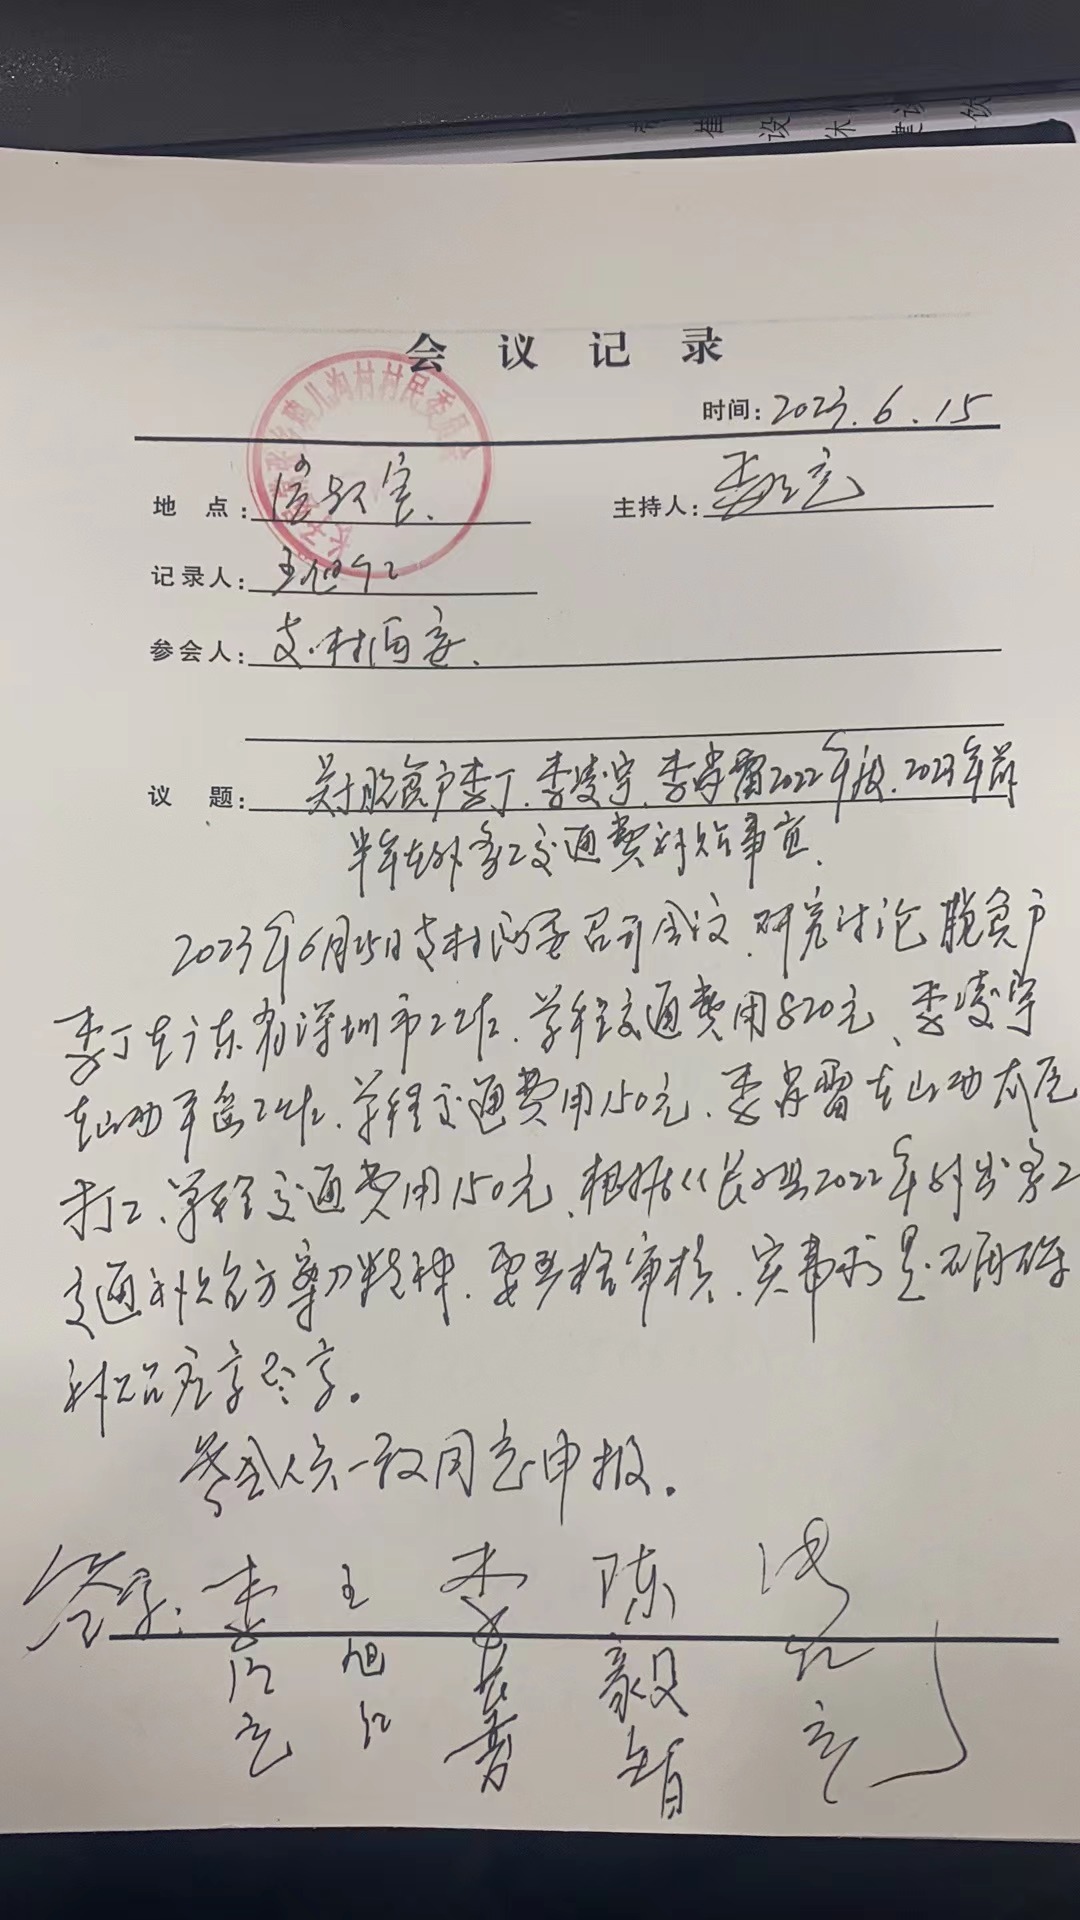 会议记录
时间：2023.6.15
地 点：会议室.
主持人：李红亮
记录人：王旭红
参会人：支.村两委.
议 题：关于脱贫户李丁.李凌宇.李肖雷2022年度.2023年前
半年在外务工交通费补贴事宜.
2023年6月15日支村两委召开会议.研究讨论脱贫户
李丁在广东省深圳市工作.单程交通费用820元、李凌宇
在山西平遥工作.单程交通费用150元.李肖雷在山西太原
打工、单程交通费用150元.根据《长子县2022年外出务工
交通补贴方案》精神.要严格审核.实事求是.不用
补贴应享尽享。
参会人员一致同意申报。
签字：李 王 李 陈
旭 毅
红